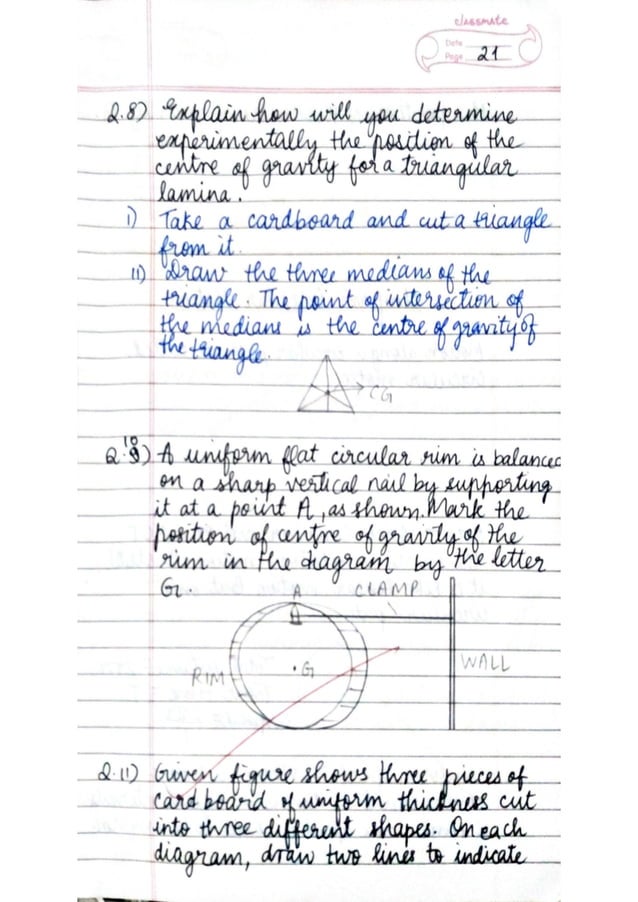 classmate
Date
Page 21
Q.8) Explain how will you determine
experimentally the position of the
centre of gravity for a triangular
lamina.
i) Take a cardboard and cut a triangle
from it.
ii) Draw the three medians of the
triangle. The point of intersection of
the medians is the centre of gravity of
the triangle.
CG
10
Q.9) A uniform flat circular rim is balanced
on a sharp vertical nail by supporting
it at a point A, as shown. Mark the
position of centre of gravity of the
rim in the diagram by the letter
G.
A CLAMP
RIM .G WALL
Q.11) Given figure shows three pieces of
card board of uniform thickness cut
into three different shapes. On each
diagram, draw two lines to indicate